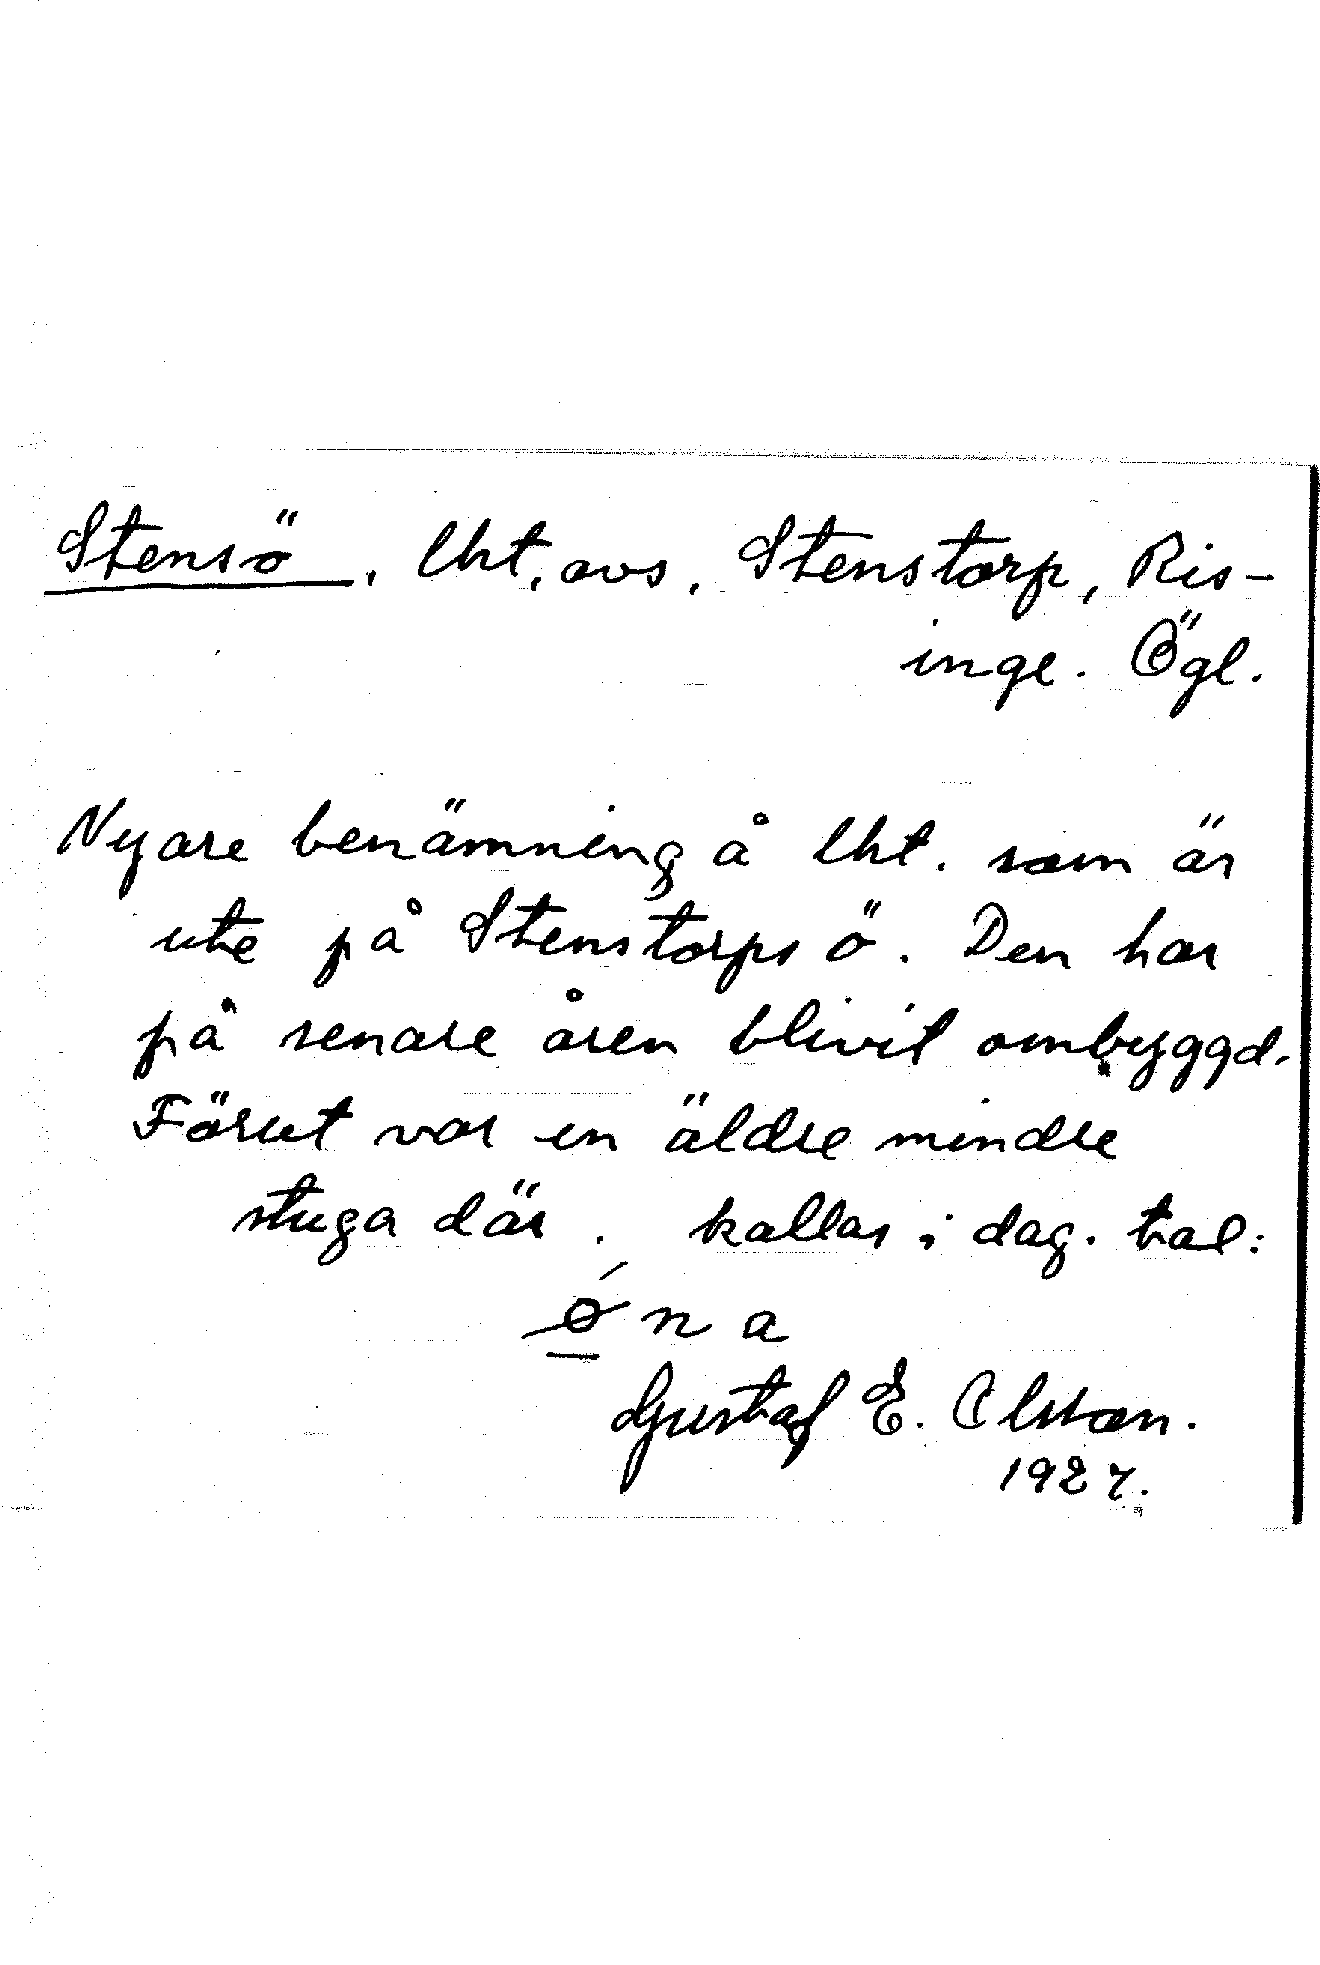 Stensö, lht, avs. Stenstorp, Ris-
inge. Ögl.
Nyare benämning å lht. som är
ute på Stenstorps ö. Den har
på senare åren blivit ombyggd.
Förut var en äldre mindre
stuga där. kallas i dag. tal:
ǿna
Gustaf E. Olsson.
1927.